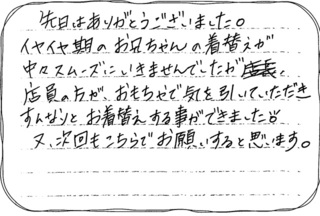 先日はありがとうございました。
イヤイヤ期のお兄ちゃんの着替えが
中々スムーズにいきませんでしたが、
店員の方が、おもちゃで気を引いていただき
すんなりとお着替えする事ができました
又、次回もこちらでお願いすると思います。